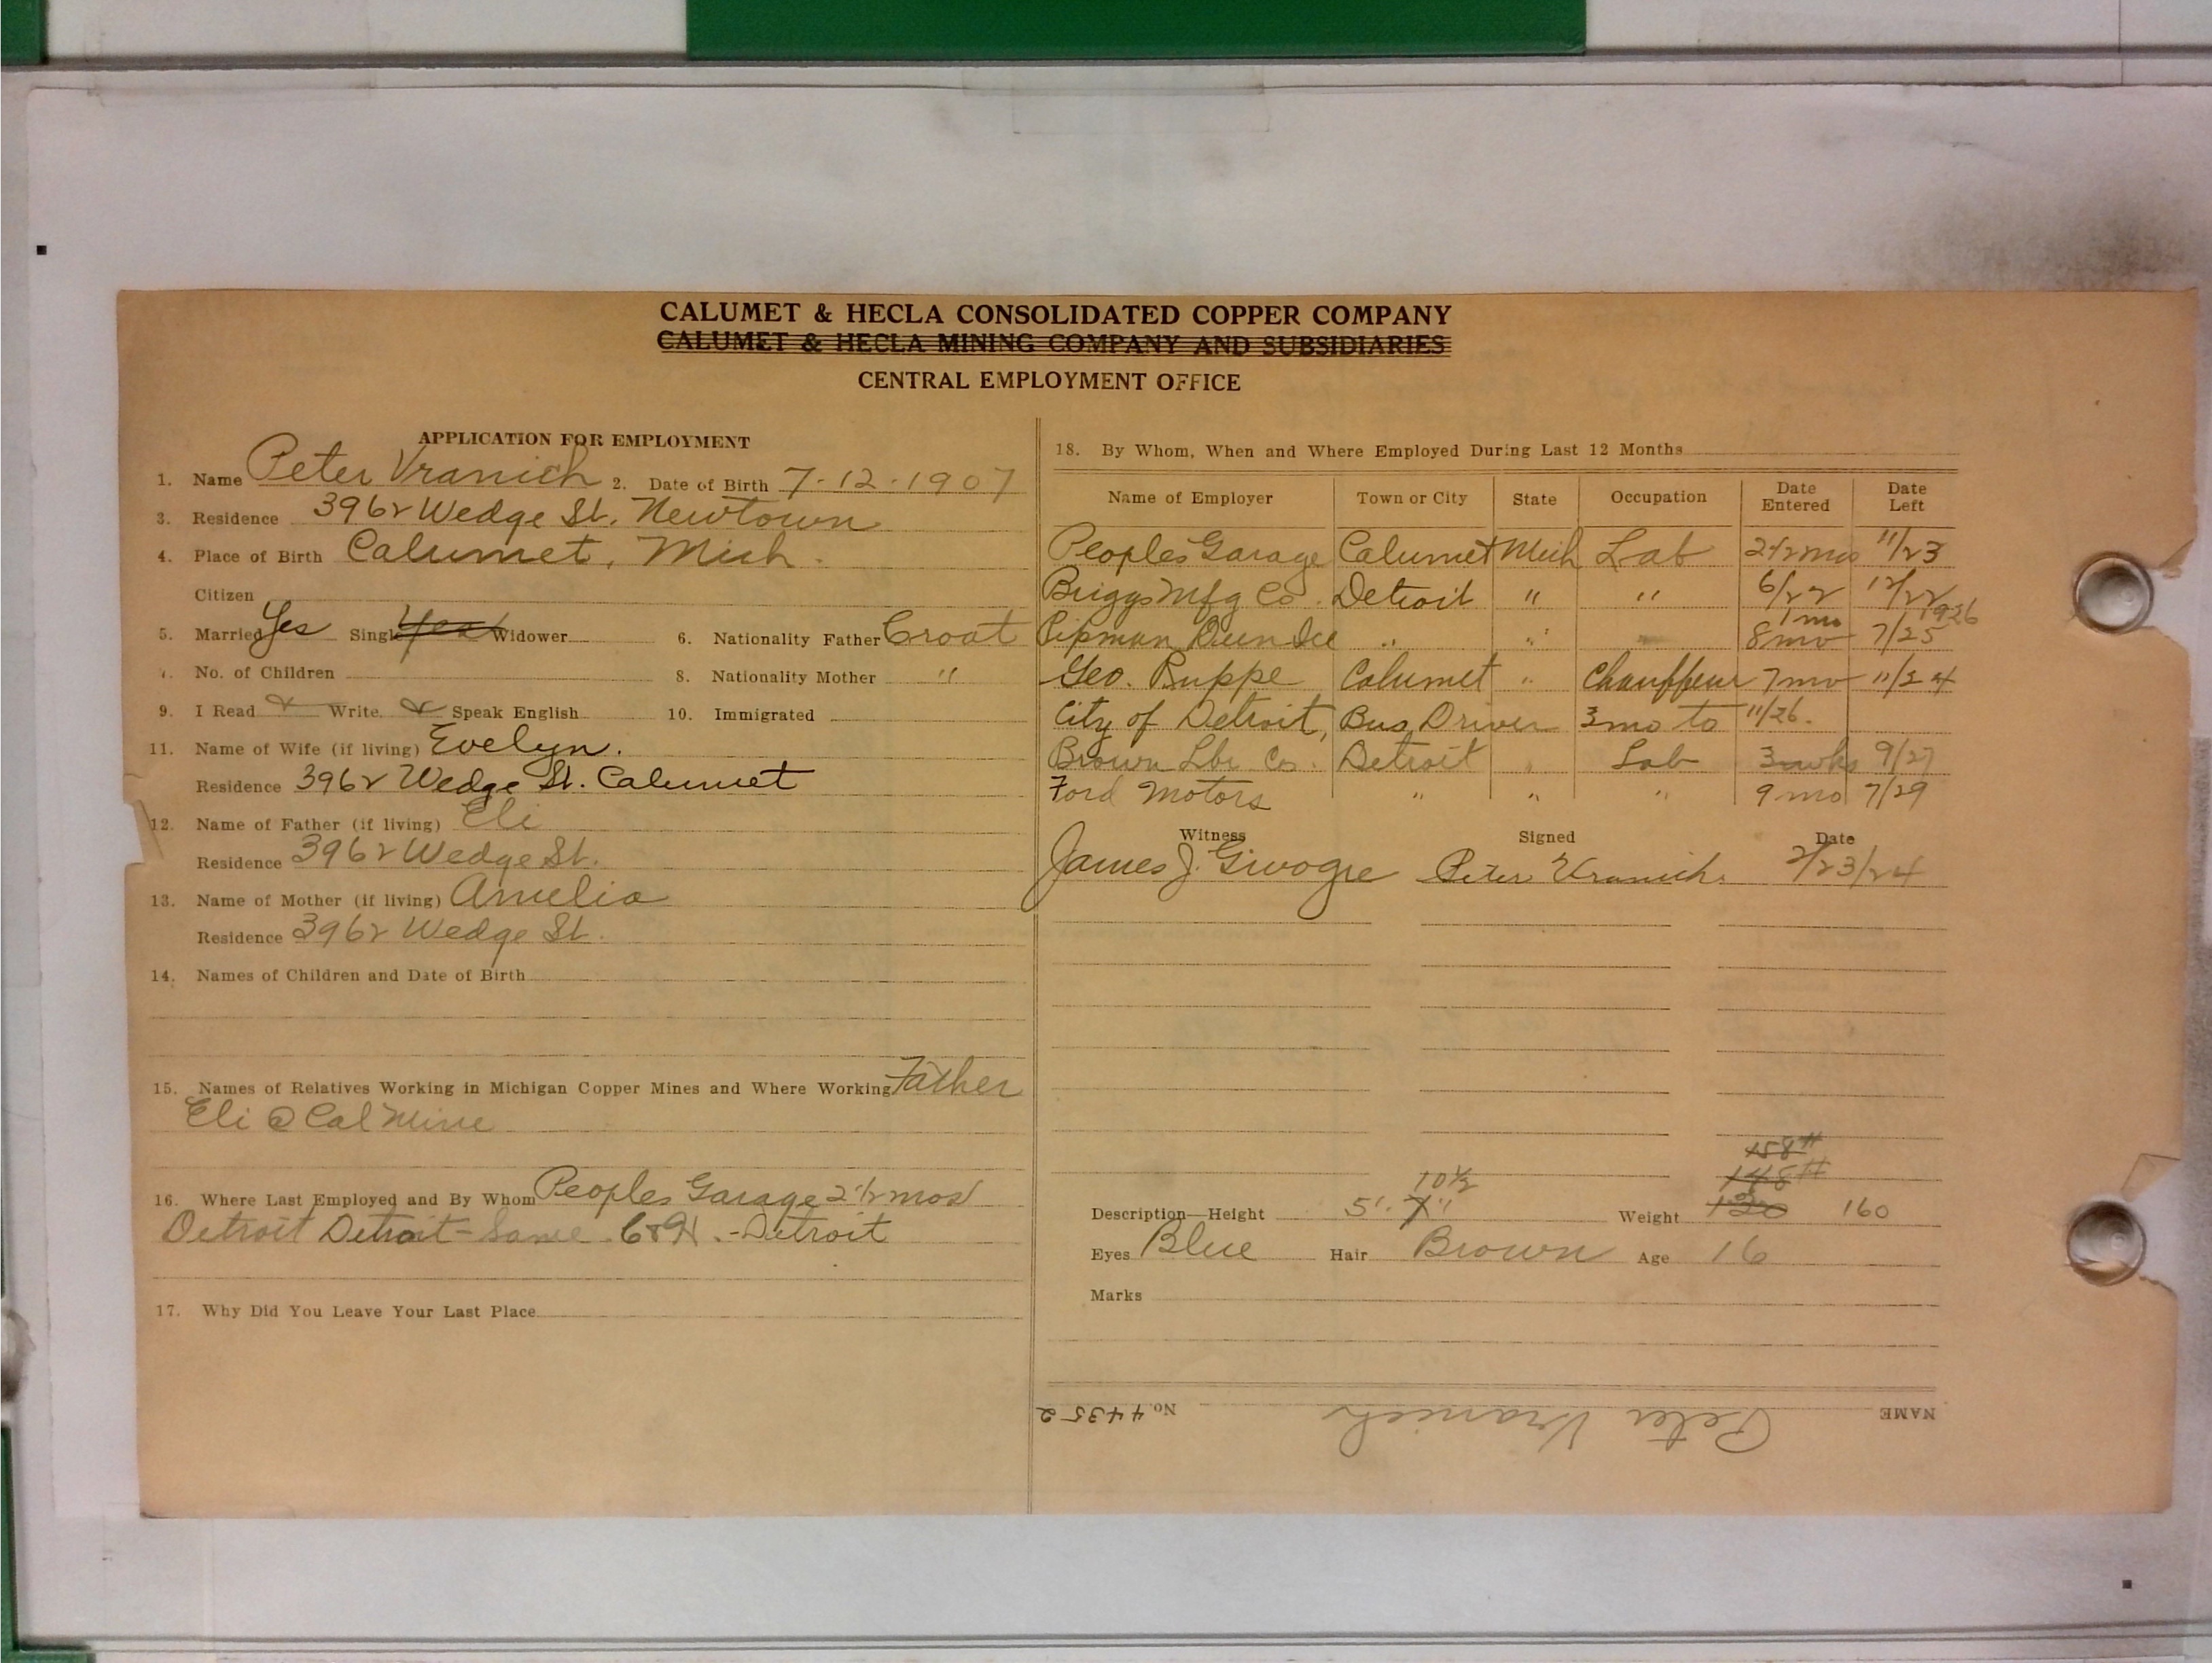 CALUMET & HECLA CONSOLIDATED COPPER COMPANY
CALUMET & HECLA MINING COMPANY AND SUBSIDIARIES
CENTRAL EMPLOYMENT OFFICE
APPLICATION FOR EMPLOYMENT
1. Name Peter Vranich 2. Date of Birth 7-12-1907
3. Residence 3962 Wedge St. Newtown
4. Place of Birth Calumet, Mich.
Citizen
5. Married Yes Single Yes Widower 6. Nationality Father Croat
7. No. of Children 8. Nationality Mother "
9. I Read Write Speak English 10. Immigrated
11. Name of Wife (if living) Evelyn.
Residence 3962 Wedge St. Calumet
12. Name of Father (if living) Eli
Residence 3962 Wedge St.
13. Name of Mother (if living) Amelia
Residence 3962 Wedge St.
14. Names of Children and Date of Birth
15. Names of Relatives Working in Michigan Copper Mines and Where Working Father
Eli @ Cal Mine
16. Where Last Employed and By Whom Peoples Garage 2 1/2 mos
Detroit Detroit - Same. C&H. - Detroit
17. Why Did You Leave Your Last Place
18. By Whom, When and Where Employed During Last 12 Months
Name of Employer Town or City State Occupation Date Entered Date Left
Peoples Garage Calumet Mich Lab 2 1/2 mos 11/23
Briggs Mfg Co. Detroit " " 6/22 12/22
1 mo 1926
" " 8 mo 7/25
Geo. Ruppe Calumet " Chauffeur 7 mo 11/24
City of Detroit, Bus Driver 3 mo to 11/26.
Brown Lbr Co. Detroit " Lab 3 wks 9/27
Ford Motors " " " 9 mo 7/29
Witness Signed Date
James J. Peter Vranich. 2/23/24
158#
10 1/2 148#
Description—Height 5'. 7" Weight 130 160
Eyes Blue Hair Brown Age 16
Marks
NAME Peter Vranich No. 44352